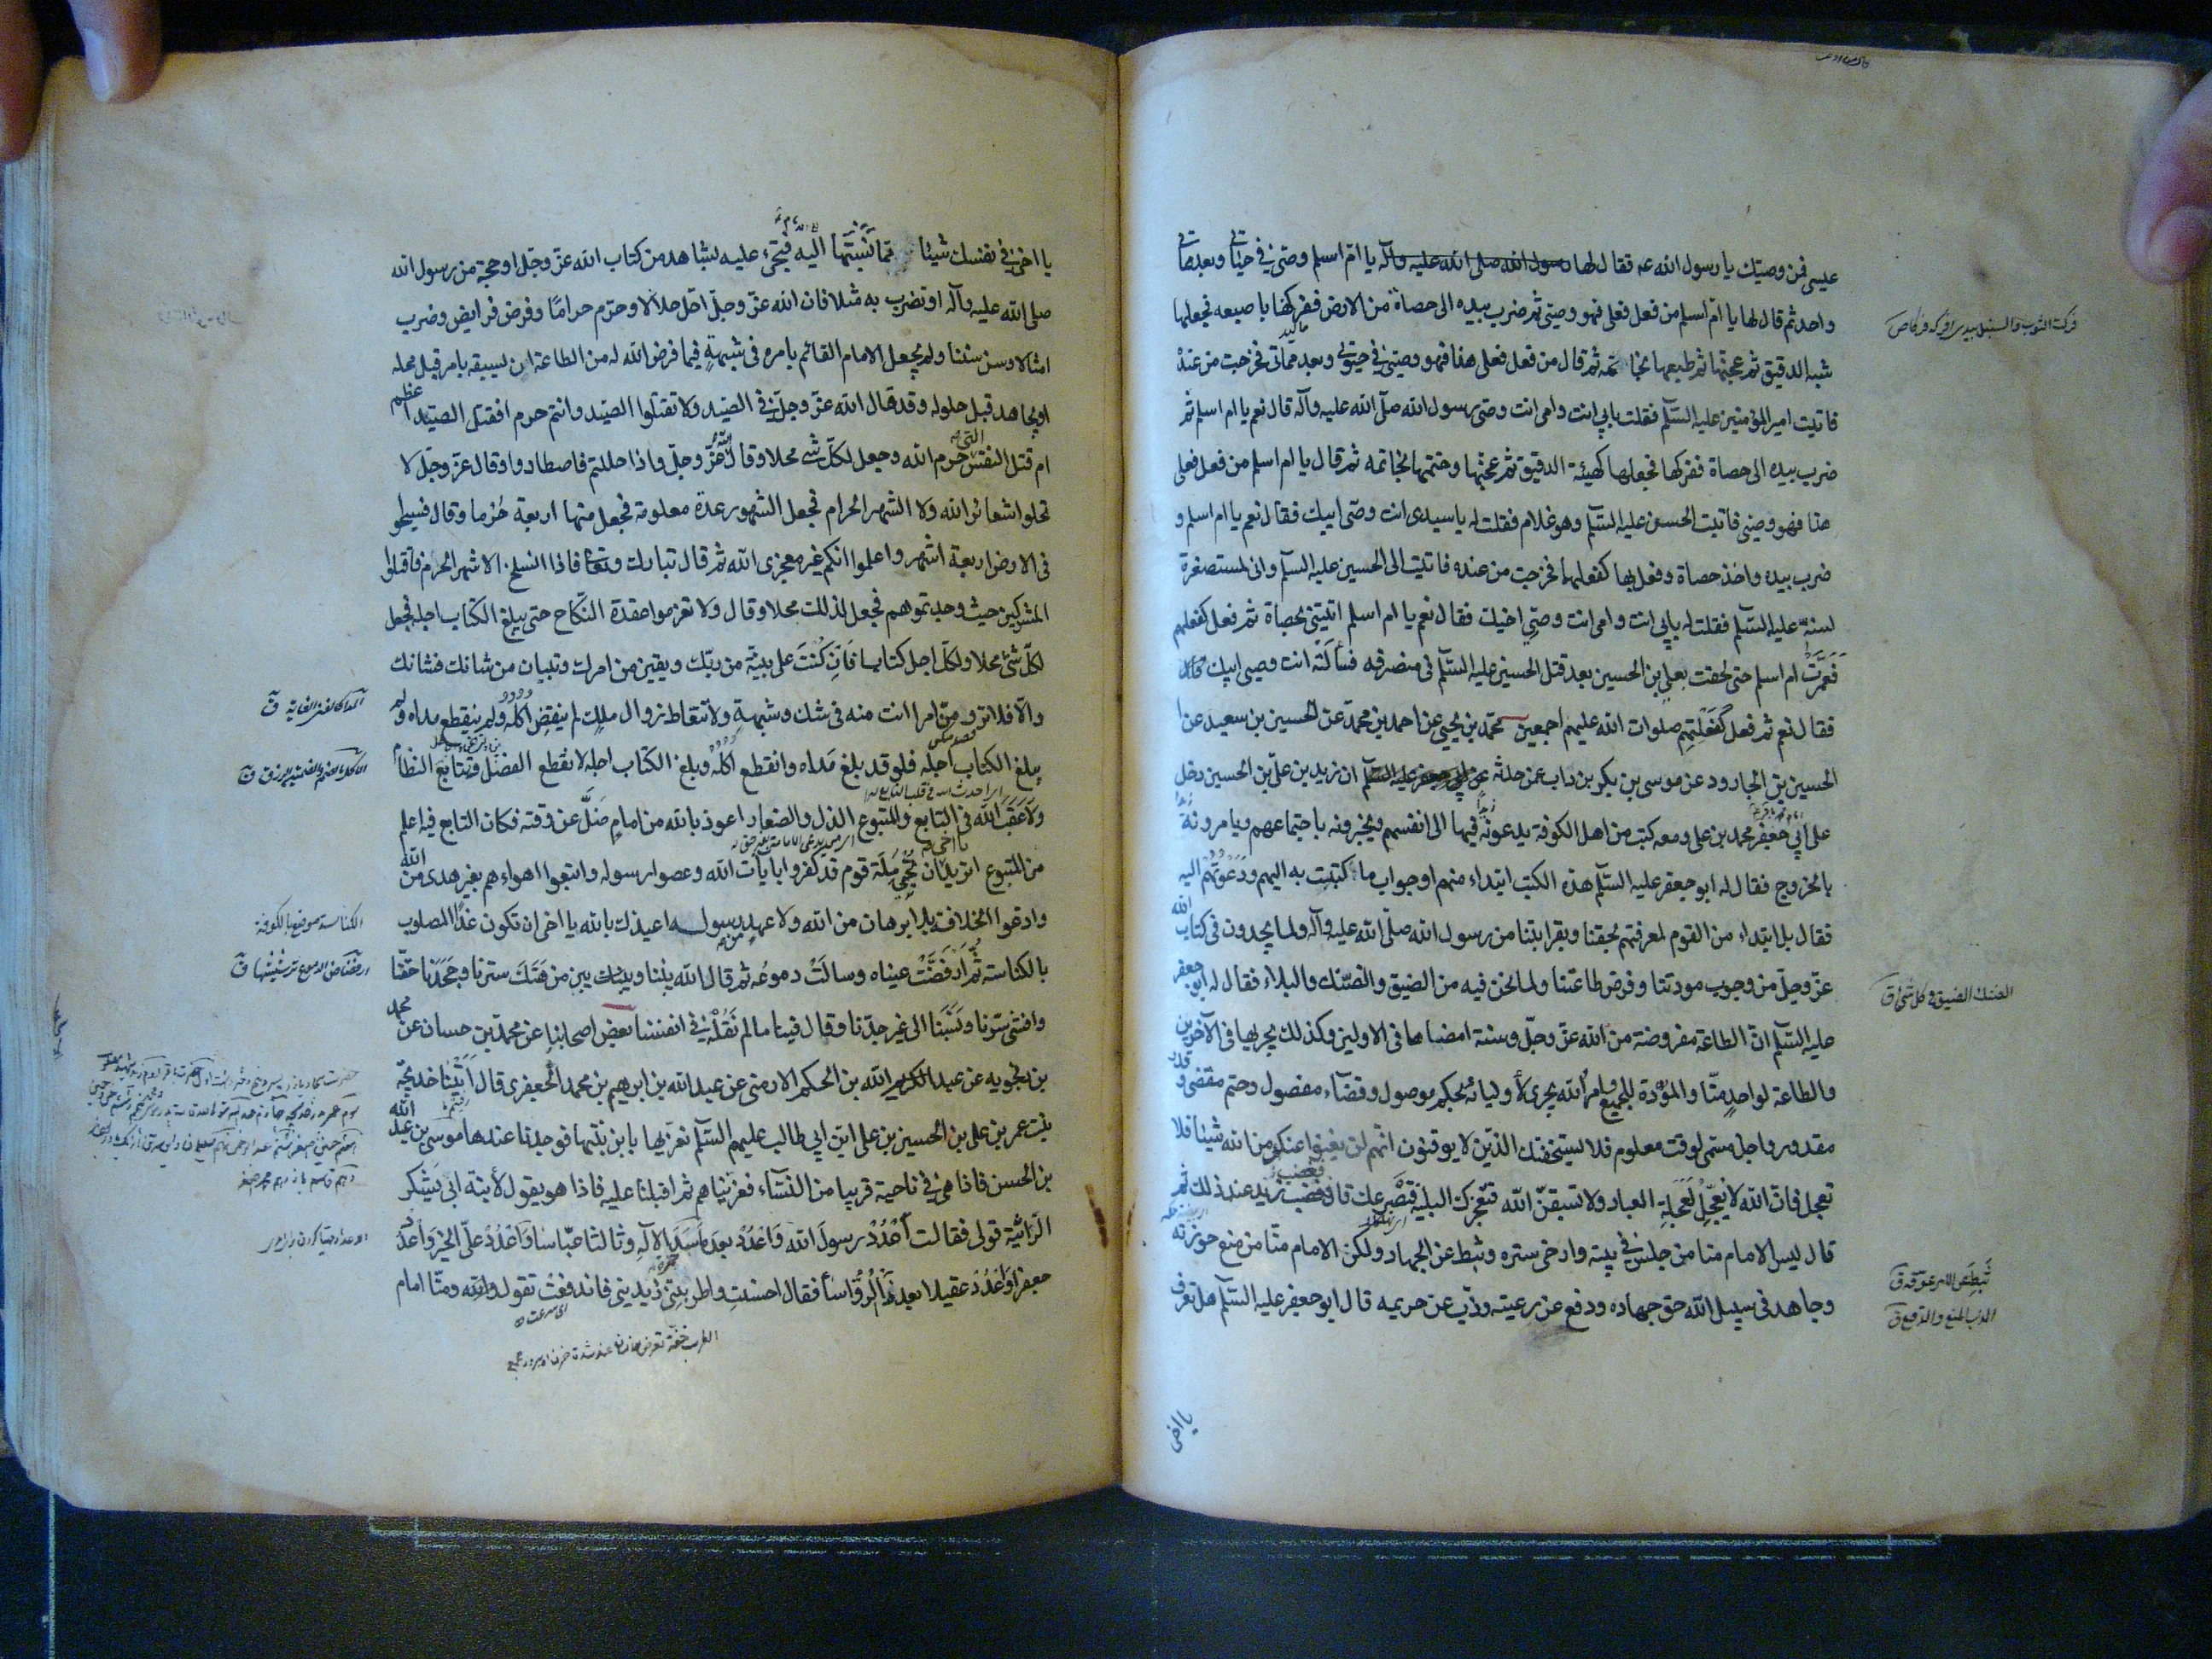 عيسى فمن وصيتك يا رسول الله فقال لها رسول الله صلى الله عليه وآله يا ام اسلم وصيي في حياتي وبعد مماتي
واحد ثم قال لها يا ام اسلم من فعل فعلي فهو وصيي ثم ضرب بيده الى حصاة من الارض ففركها باصبعه فجعلها
شبه الدقيق ثم عجنها ثم طبعها بخاتمه ثم قال من فعل فعلي هذا فهو وصيي في حيوتي وبعد مماتي فخرجت من عنده
فاتيت امير المؤمنين عليه السلم فقلت بابي انت وامي انت وصي رسول الله صلى الله عليه وآله قال نعم يا ام اسلم ثم
ضرب بيده الى حصاة ففركها فجعلها كهيئة الدقيق ثم عجنها وختمها بخاتمه ثم قال يا ام اسلم من فعل فعلي
هذا فهو وصيي فاتيت الحسن عليه السلم وهو غلام فقلت له يا سيدي انت وصي ابيك فقال نعم يا ام اسلم و
ضرب بيده واخذ حصاة وفعل بها كفعلهما فخرجت من عنده فاتيت الى الحسين عليه السلم واني لمستصغرة
لسنه عليه السلم فقلت له بابي انت وامي انت وصي اخيك فقال نعم يا ام اسلم ائتيني بحصاة ثم فعل كفعلهم
فعمرت ام اسلم حتى لحقت بعلي بن الحسين بعد قتل الحسين عليه السلم في منصرفه فسألته انت وصي ابيك
فقال نعم ثم فعل كفعلهم صلوات الله عليهم اجمعين محمد بن يحيى عن احمد بن محمد عن الحسين بن سعيد عن
الحسين بن الجارود عن موسى بن بكر بن داب عمن حدثه عن ابي جعفر عليه السلم ان زيد بن علي بن الحسين دخل
على ابي جعفر محمد بن علي ومعه كتب من اهل الكوفة يدعونه فيها الى انفسهم ويخبرونه باجتماعهم ويأمرونه
بالخروج فقال له ابو جعفر عليه السلم هذه الكتب ابتداء منهم او جواب ما كتبت به اليهم ودعوتهم اليه
فقال بل ابتداء من القوم لمعرفتهم بحقنا وبقرابتنا من رسول الله صلى الله عليه وآله ولما يجدون في كتاب الله
عز وجل من وجوب مودتنا وفرض طاعتنا ولما نحن فيه من الضيق والضنك والبلاء فقال له ابو جعفر
عليه السلم ان الطاعة مفروضة من الله عز وجل وسنة امضاها في الاولين وكذلك يجريها في الآخرين
والطاعة لواحد منا والمودة للجميع وامر الله يجري لأوليائه بحكم موصول وقضاء مفصول وحتم مقضي وقدر
مقدور واجل مسمى لوقت معلوم فلا يستخفنك الذين لا يوقنون انهم لن يغنوا عنك من الله شيئا فلا
تعجل فان الله لا يعجل لعجلة العباد ولا تسبقن الله فتعجزك البلية فتصرعك قال فغضب زيد عند ذلك ثم
قال ليس الامام منا من جلس في بيته وارخى ستره وثبط عن الجهاد ولكن الامام منا من منع حوزته
وجاهد في سبيل الله حق جهاده ودفع عن رعيته وذب عن حريمه قال ابو جعفر عليه السلم هل تعرف
يا اخي
الضنك الضيق في كل شيء ق
ثبطه عن الامر عوقه ق
الذب المنع والدفع ق
يا اخي في نفسك شيئا مما نسبتها اليه فتجيء عليه بشاهد من كتاب الله عز وجل او حجة من رسول الله
صلى الله عليه وآله او تضرب به مثلا فان الله عز وجل احل حلالا وحرم حراما وفرض فرايض وضرب
امثالا وسن سننا ولم يجعل الامام القائم بامره في شبهة فيما فرض الله له من الطاعة ان يسبقه بامر قبل محله
او يجاهد قبل حلوله وقد قال الله عز وجل في الصيد ولا تقتلوا الصيد وانتم حرم افقتل الصيد اعظم
ام قتل النفس التي حرم الله وجعل لكل شيء محلا وقال الله عز وجل واذا حللتم فاصطادوا وقال عز وجل لا
تحلوا شعائر الله ولا الشهر الحرام فجعل الشهور عدة معلومة فجعل منها اربعة حرما وقال فسيحوا
في الارض اربعة اشهر واعلموا انكم غير معجزي الله ثم قال تبارك وتعالى فاذا انسلخ الاشهر الحرم فاقتلوا
المشركين حيث وجدتموهم فجعل لذلك محلا وقال ولا تعزموا عقدة النكاح حتى يبلغ الكتاب اجله فجعل
لكل شيء محلا ولكل اجل كتابا فان كنت على بينة من ربك ويقين من امرك وتبيان من شانك فشانك
والا فلا ترومن امرا انت منه في شك وشبهة ولا تتعاط زوال ملك لم ينقض اكله ولم ينقطع مداه ولم
يبلغ الكتاب اجله فلو قد بلغ مداه وانقطع اكله وبلغ الكتاب اجله لانقطع الفصل وتتابع النظام
ولاعقب الله في التابع والمتبوع الذل والصغار اعوذ بالله من امام ضل عن وقته فكان التابع فيه اعلم
من المتبوع اتريد يا اخي ان تحيي ملة قوم قد كفروا بآيات الله وعصوا رسوله واتبعوا اهواءهم بغير هدى من الله
وادعوا الخلافة بلا برهان من الله ولا عهد من رسوله اعيذك بالله يا اخي ان تكون غدا المصلوب
بالكناسة ثم ارفضت عيناه وسالت دموعه ثم قال الله بيننا وبين من هتك سترنا وجحدنا حقنا
وافشى سرنا ونسبنا الى غير جدنا وقال فينا ما لم نقله في انفسنا بعض اصحابنا عن محمد بن حسان عن محمد
بن رنجويه عن عبد الله بن الحكم الارمني عن عبد الله بن ابرهيم بن محمد الجعفري قال اتينا خديجة
بنت عمر بن علي بن الحسين بن علي ابن ابي طالب عليهم السلم نعزيها بابن بنتها فوجدنا عندها موسى بن عبد الله
بن الحسن فاذا هي في ناحية قريبا من النساء فعزيناهم ثم اقبلنا عليه فاذا هو يقول لأبنة ابي يشكر
الراثية قولي فقالت اعدد رسول الله واعدد بعده اسد الاله وثالثا عباسا واعدد علي الخير واعدد
جعفرا واعدد عقيلا بعده الرؤاسا فقال احسنت واطربتني زيديني فاندفعت تقول ومنا امام
الكناسة موضع بالكوفة
ارفضاض الدموع ترششها ق